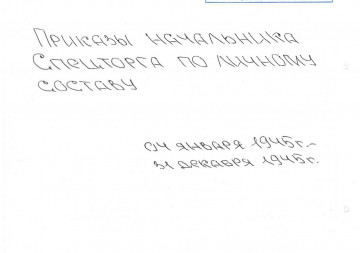 Приказы начальника
Спецторга по личному
составу
04 января 1945г.-
31 декабря 1945г.